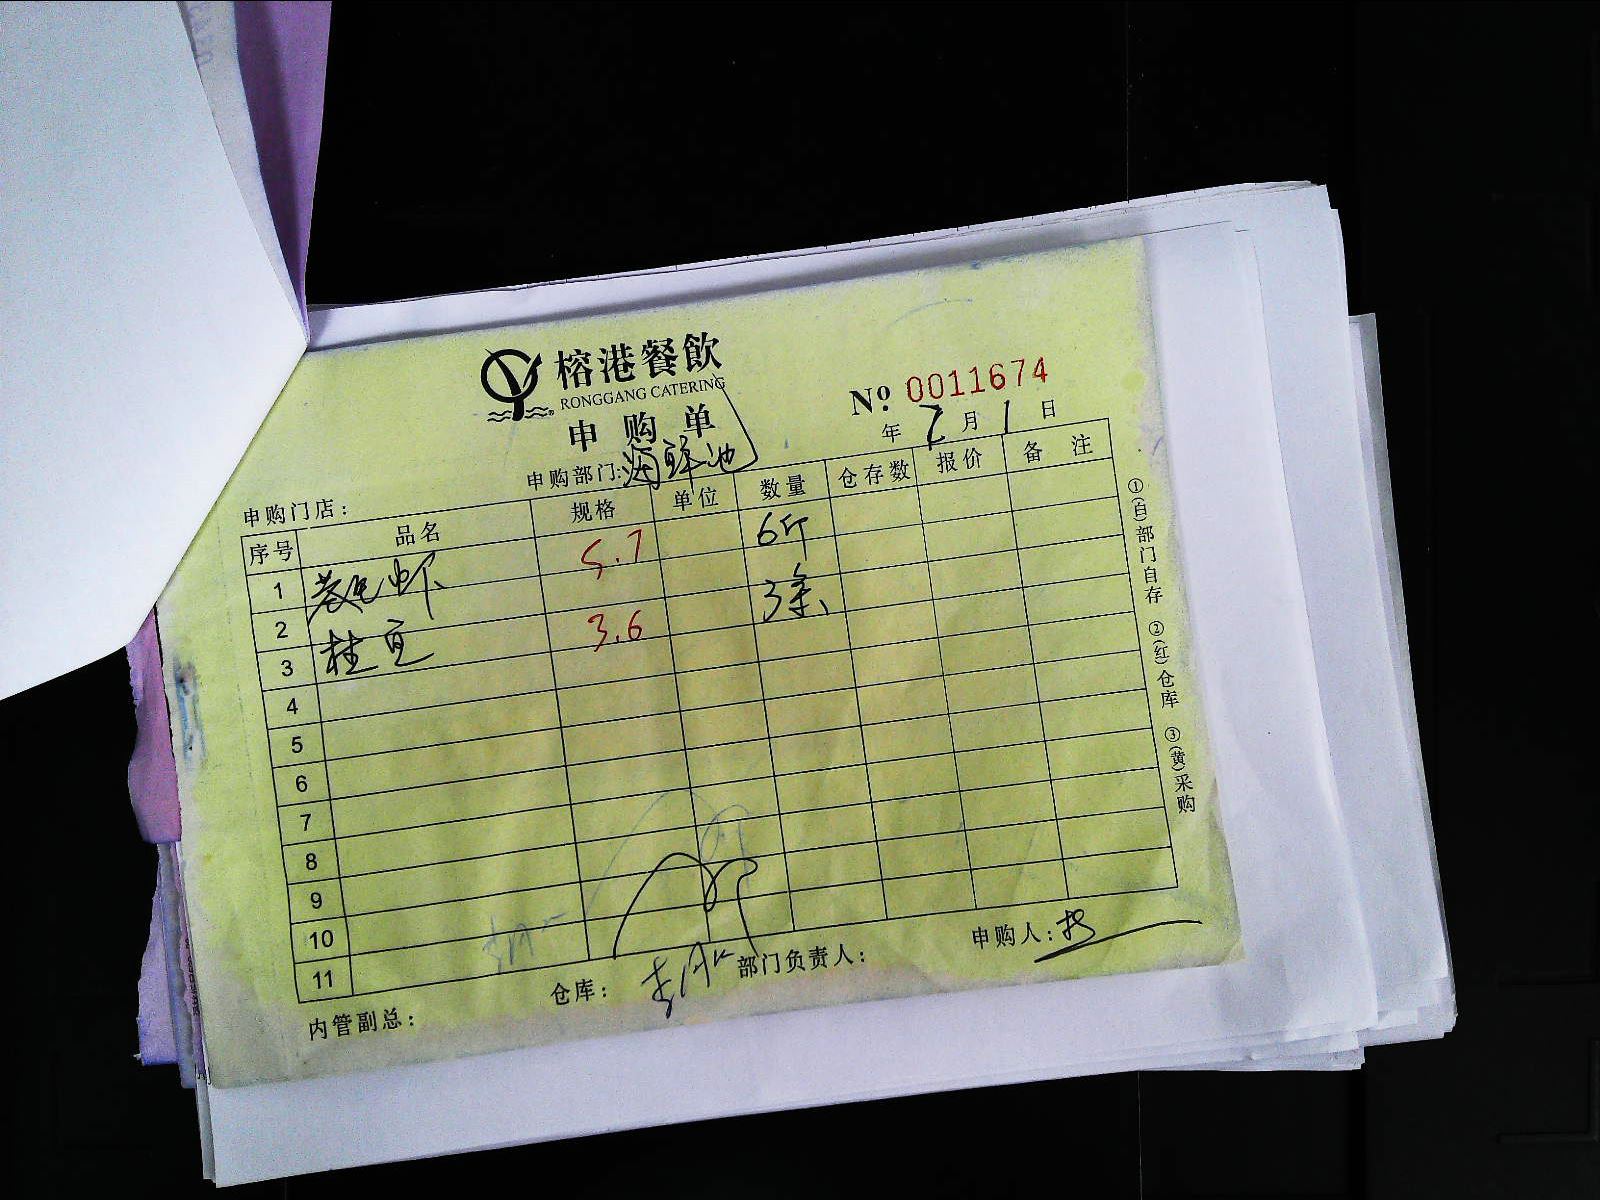 榕港餐飲
RONGGANG CATERING
申购单
№ 0011674
年 7 月 1 日
申购门店： 申购部门：海鲜池
序号 品名 规格 单位 数量 仓存数 报价 备注
1 虾 5.7 6斤
2 3条
3 桂 3.6
4
5
6
7
8
9
10
11
内管副总： 仓库： 部门负责人： 申购人：
①(白)部门自存 ②(红)仓库 ③(黄)采购